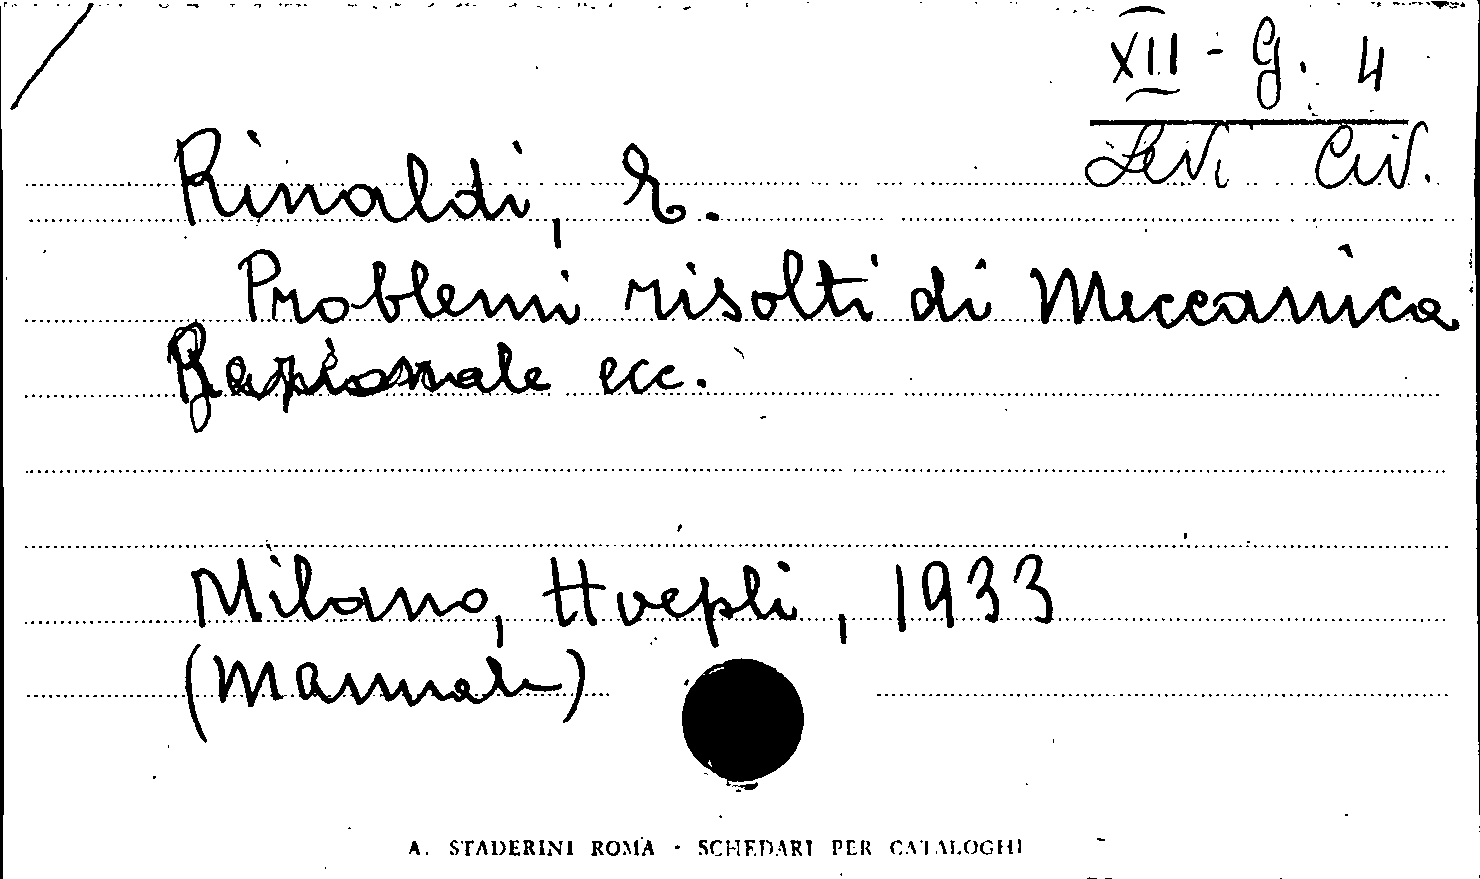 XII - G. 4
Levi Civ.
Rinaldi, E.
Problemi risolti di Meccanica
Razionale ecc.
Milano, Hoepli, 1933
(Manuali)
A. STADERINI ROMA - SCHEDARI PER CATALOGHI